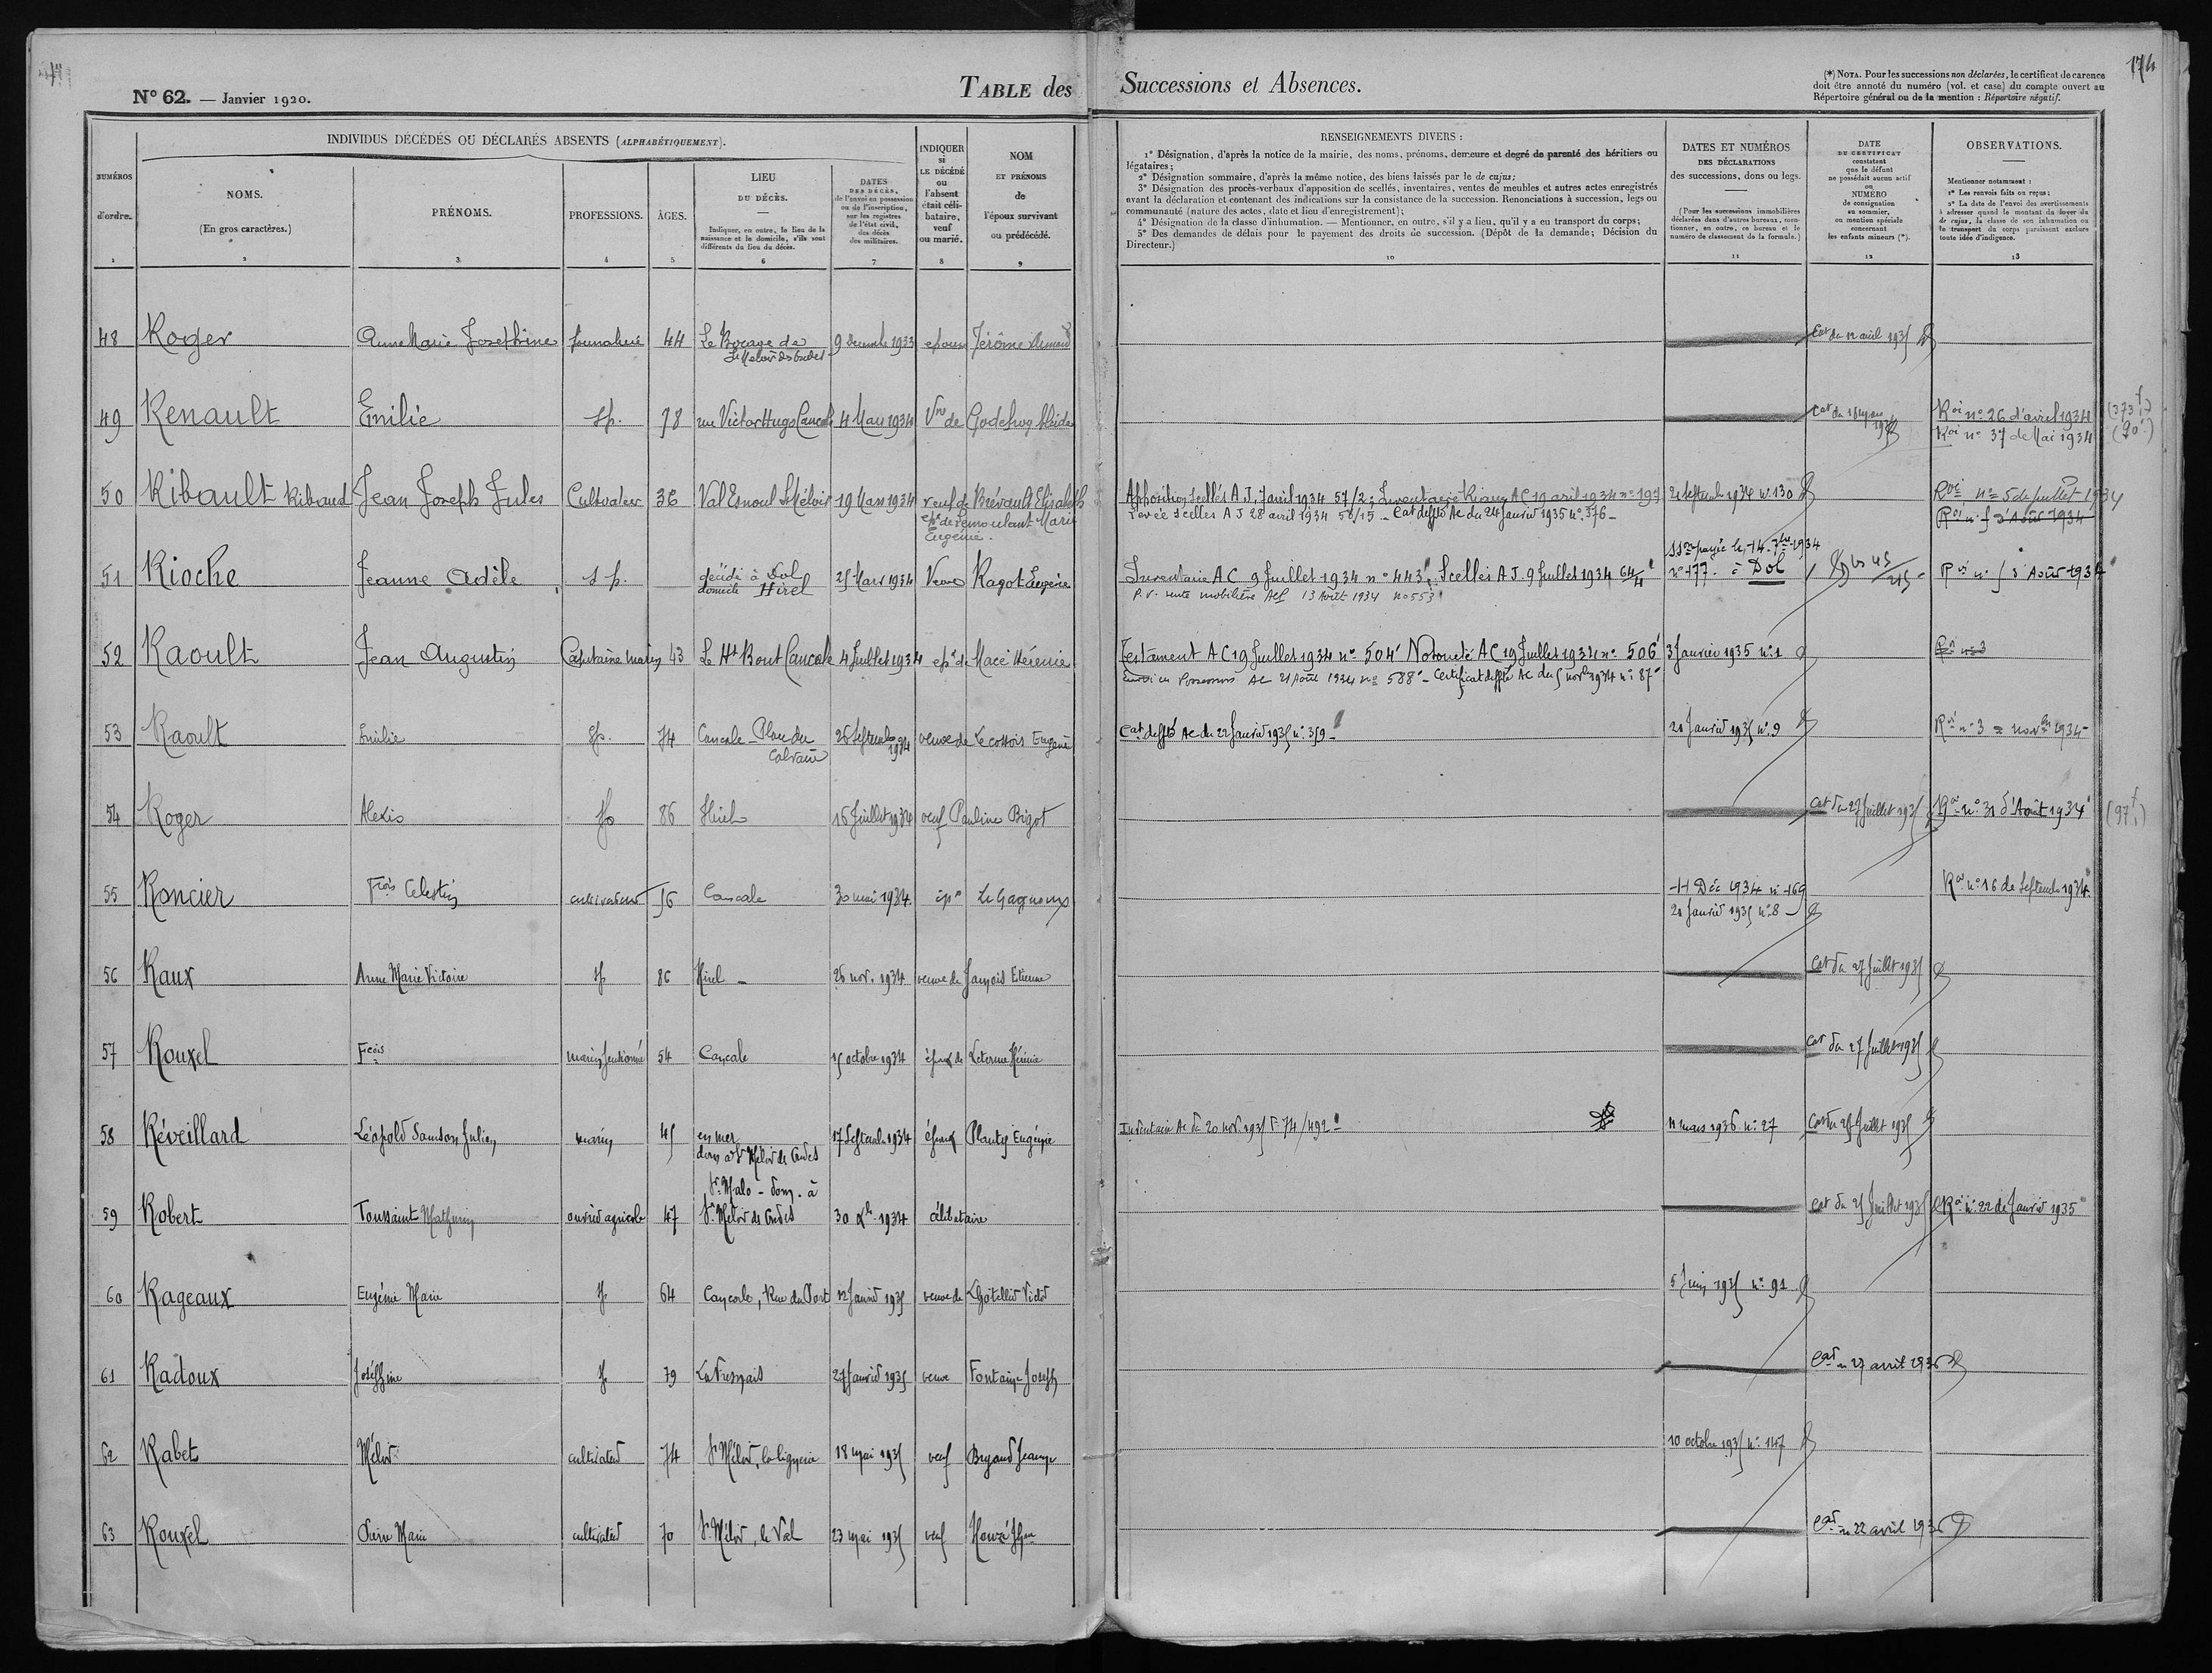 174
N° 62. — Janvier 1920.
TABLE des Successions et Absences.
(*) NOTA. Pour les successions non déclarées, le certificat de carence
doit être annoté du numéro (vol. et case) du compte ouvert au
Répertoire général ou de la mention : Répertoire négatif.
INDIVIDUS DÉCÉDÉS OU DÉCLARÉS ABSENTS (ALPHABÉTIQUEMENT).
NUMÉROS
d'ordre.
1
NOMS.
(En gros caractères.)
2
PRÉNOMS.
3
PROFESSIONS.
4
ÂGES.
5
LIEU
DU DÉCÈS.
Indiquer, en outre, le lieu de la
naissance et le domicile, s'ils sont
différents du lieu du décès.
6
DATES
DES DÉCÈS,
de l'envoi en possession
ou de l'inscription,
sur les registres
de l'état civil,
des décès
des militaires.
7
INDIQUER
si
LE DÉCÉDÉ
ou
l'absent
était céli-
bataire,
veuf
ou marié.
8
NOM
ET PRÉNOMS
de
l'époux survivant
ou prédécédé.
9
RENSEIGNEMENTS DIVERS :
1° Désignation, d'après la notice de la mairie, des noms, prénoms, demeure et degré de parenté des héritiers ou
légataires;
2° Désignation sommaire, d'après la même notice, des biens laissés par le de cujus;
3° Désignation des procès-verbaux d'apposition de scellés, inventaires, ventes de meubles et autres actes enregistrés
avant la déclaration et contenant des indications sur la consistance de la succession. Renonciations à succession, legs ou
communauté (nature des actes, date et lieu d'enregistrement);
4° Désignation de la classe d'inhumation. — Mentionner, en outre, s'il y a lieu, qu'il y a eu transport du corps;
5° Des demandes de délais pour le payement des droits de succession. (Dépôt de la demande; Décision du
Directeur.)
10
DATES ET NUMÉROS
DES DÉCLARATIONS
des successions, dons ou legs.
(Pour les successions immobilières
déclarées dans d'autres bureaux, men-
tionner, en outre, ce bureau et le
numéro de classement de la formule.)
11
DATE
DU CERTIFICAT
constatant
que le défunt
ne possédait aucun actif
ou
NUMÉRO
de consignation
au sommier,
ou mention spéciale
concernant
les enfants mineurs (*).
12
OBSERVATIONS.
Mentionner notamment :
1° Les renvois faits ou reçus;
2° La date de l'envoi des avertissements
à adresser quand le montant du loyer du
de cujus, la classe de son inhumation ou
le transport du corps paraissent exclure
toute idée d'indigence.
13
48 Roger Anne Marie Josephine journalière 44 Le Bocage de 9 decembre 1933 epouse Jérôme Cat du 12 avril 1935
St Meloir des Ondes
49 Renault Emilie sp. 78 rue Victor Hugo Cancale 4 Mars 1934 Vve de Godefroy Roi n° 26 d'avril 1934 (373f)
Roi n° 37 de Mai 1934 (90f)
50 Ribault Ribaud Jean Joseph Jules Cultivateur 36 Val Esnoul St Méloir 19 Mars 1934 veuf de Brévault Elisabeth Apposition Scellés A.J. 7 avril 1934 57/2; Inventaire AC 19 avril 1934 n° 197 21 Septembre 1934 n° 130 Roi n° 5 de juillet 1934
ep. de Lemoulant Marie Levée scellés AJ 28 avril 1934 58/15 - Cat dessté Ac du 24 janvier 1935 n° 376 - Roi n° 5 d'Août 1934
Eugenie.
51 Rioche Jeanne Adèle sp. décédé à Dol 25 Mars 1934 Veuve Ragot Eugène Inventaire AC 9 Juillet 1934 n° 443. Scellés A.J. 9 Juillet 1934 64/4 payée le 14 7bre 1934 Roi n° 5 d'Août 1934
domicile Hirel P.V. vente mobilière 13 Août 1934 n° 553 n° 177. à Dol
52 Raoult Jean Augustin Capitaine marin 43 Le Ht Bout Cancale 4 Juillet 1934 ep. de Macé Herénie Testament AC 19 Juillet 1934 n° 504 Notoriété AC 19 Juillet 1934 n° 506 3 Janvier 1935 n° 1
Envoi en Possession AC 21 Août 1934 n° 588 - Certificat AC du 5 novbre 1934 n° 87
53 Raoult Emilie sp. 74 Cancale - Place du 26 Septembre 1934 veuve de Lecossois Eugène Cat dessté Ac du 22 Janvier 1935 n° 359 - 21 Janvier 1935 n° 9 Roi n° 3 novbre 1934 -
Calvaire
54 Roger Alexis sp 86 Hirel 16 Juillet 1934 veuf Pauline Bigot Cat du 27 Juillet 1935 Roi n° 31 d'Août 1934 (97f)
55 Roncier Frois Celestin cultivateur 56 Cancale 30 mai 1934 épx Le Gagneux 11 Déc 1934 n° 169 Roi n° 16 de Septembre 1934
21 Janvier 1935 n° 8 -
56 Raux Anne Marie Victoire sp 86 Hirel - 26 nov. 1934 veuve de François Etienne Cat du 27 Juillet 1935
57 Rouxel Fcois marin pensionné 54 Cancale 15 octobre 1934 époux de Leterrue Hérénie Cat du 27 Juillet 1935
58 Réveillard Léopold Samson Julien marin 45 en mer 17 Septemb 1934 époux Plantez Eugénie Inventaire Ac du 20 nov. 1935 F. 74/492 11 mars 1936 n° 27 Cat du 25 Juillet 1935
dom à St Méloir des Ondes
59 Robert Toussaint Mathurin ouvrier agricole 47 St Malo - dom. à 30 Xbre 1934 célibataire Cat du 25 Juillet 1935 Roi n° 22 de Janvier 1935
St Méloir des Ondes
60 Rageaux Eugénie Marie sp 64 Cancale, Rue du Port 12 Janvier 1935 veuve de Lhotellier Victor 5 Juin 1935 n° 91
61 Radoux Joséphine sp 79 La Fresnais 27 Janvier 1935 veuve Fontaine Joseph Cat du 27 avril 1936
62 Rabet Méloir cultivateur 74 St Méloir, 18 mai 1935 veuf Bryand Jeanne 10 octobre 1935 n° 147
63 Rouxel Pierre Marie cultivateur 70 St Méloir, le Val 23 mai 1935 veuf Houzé Cat du 22 avril 1936